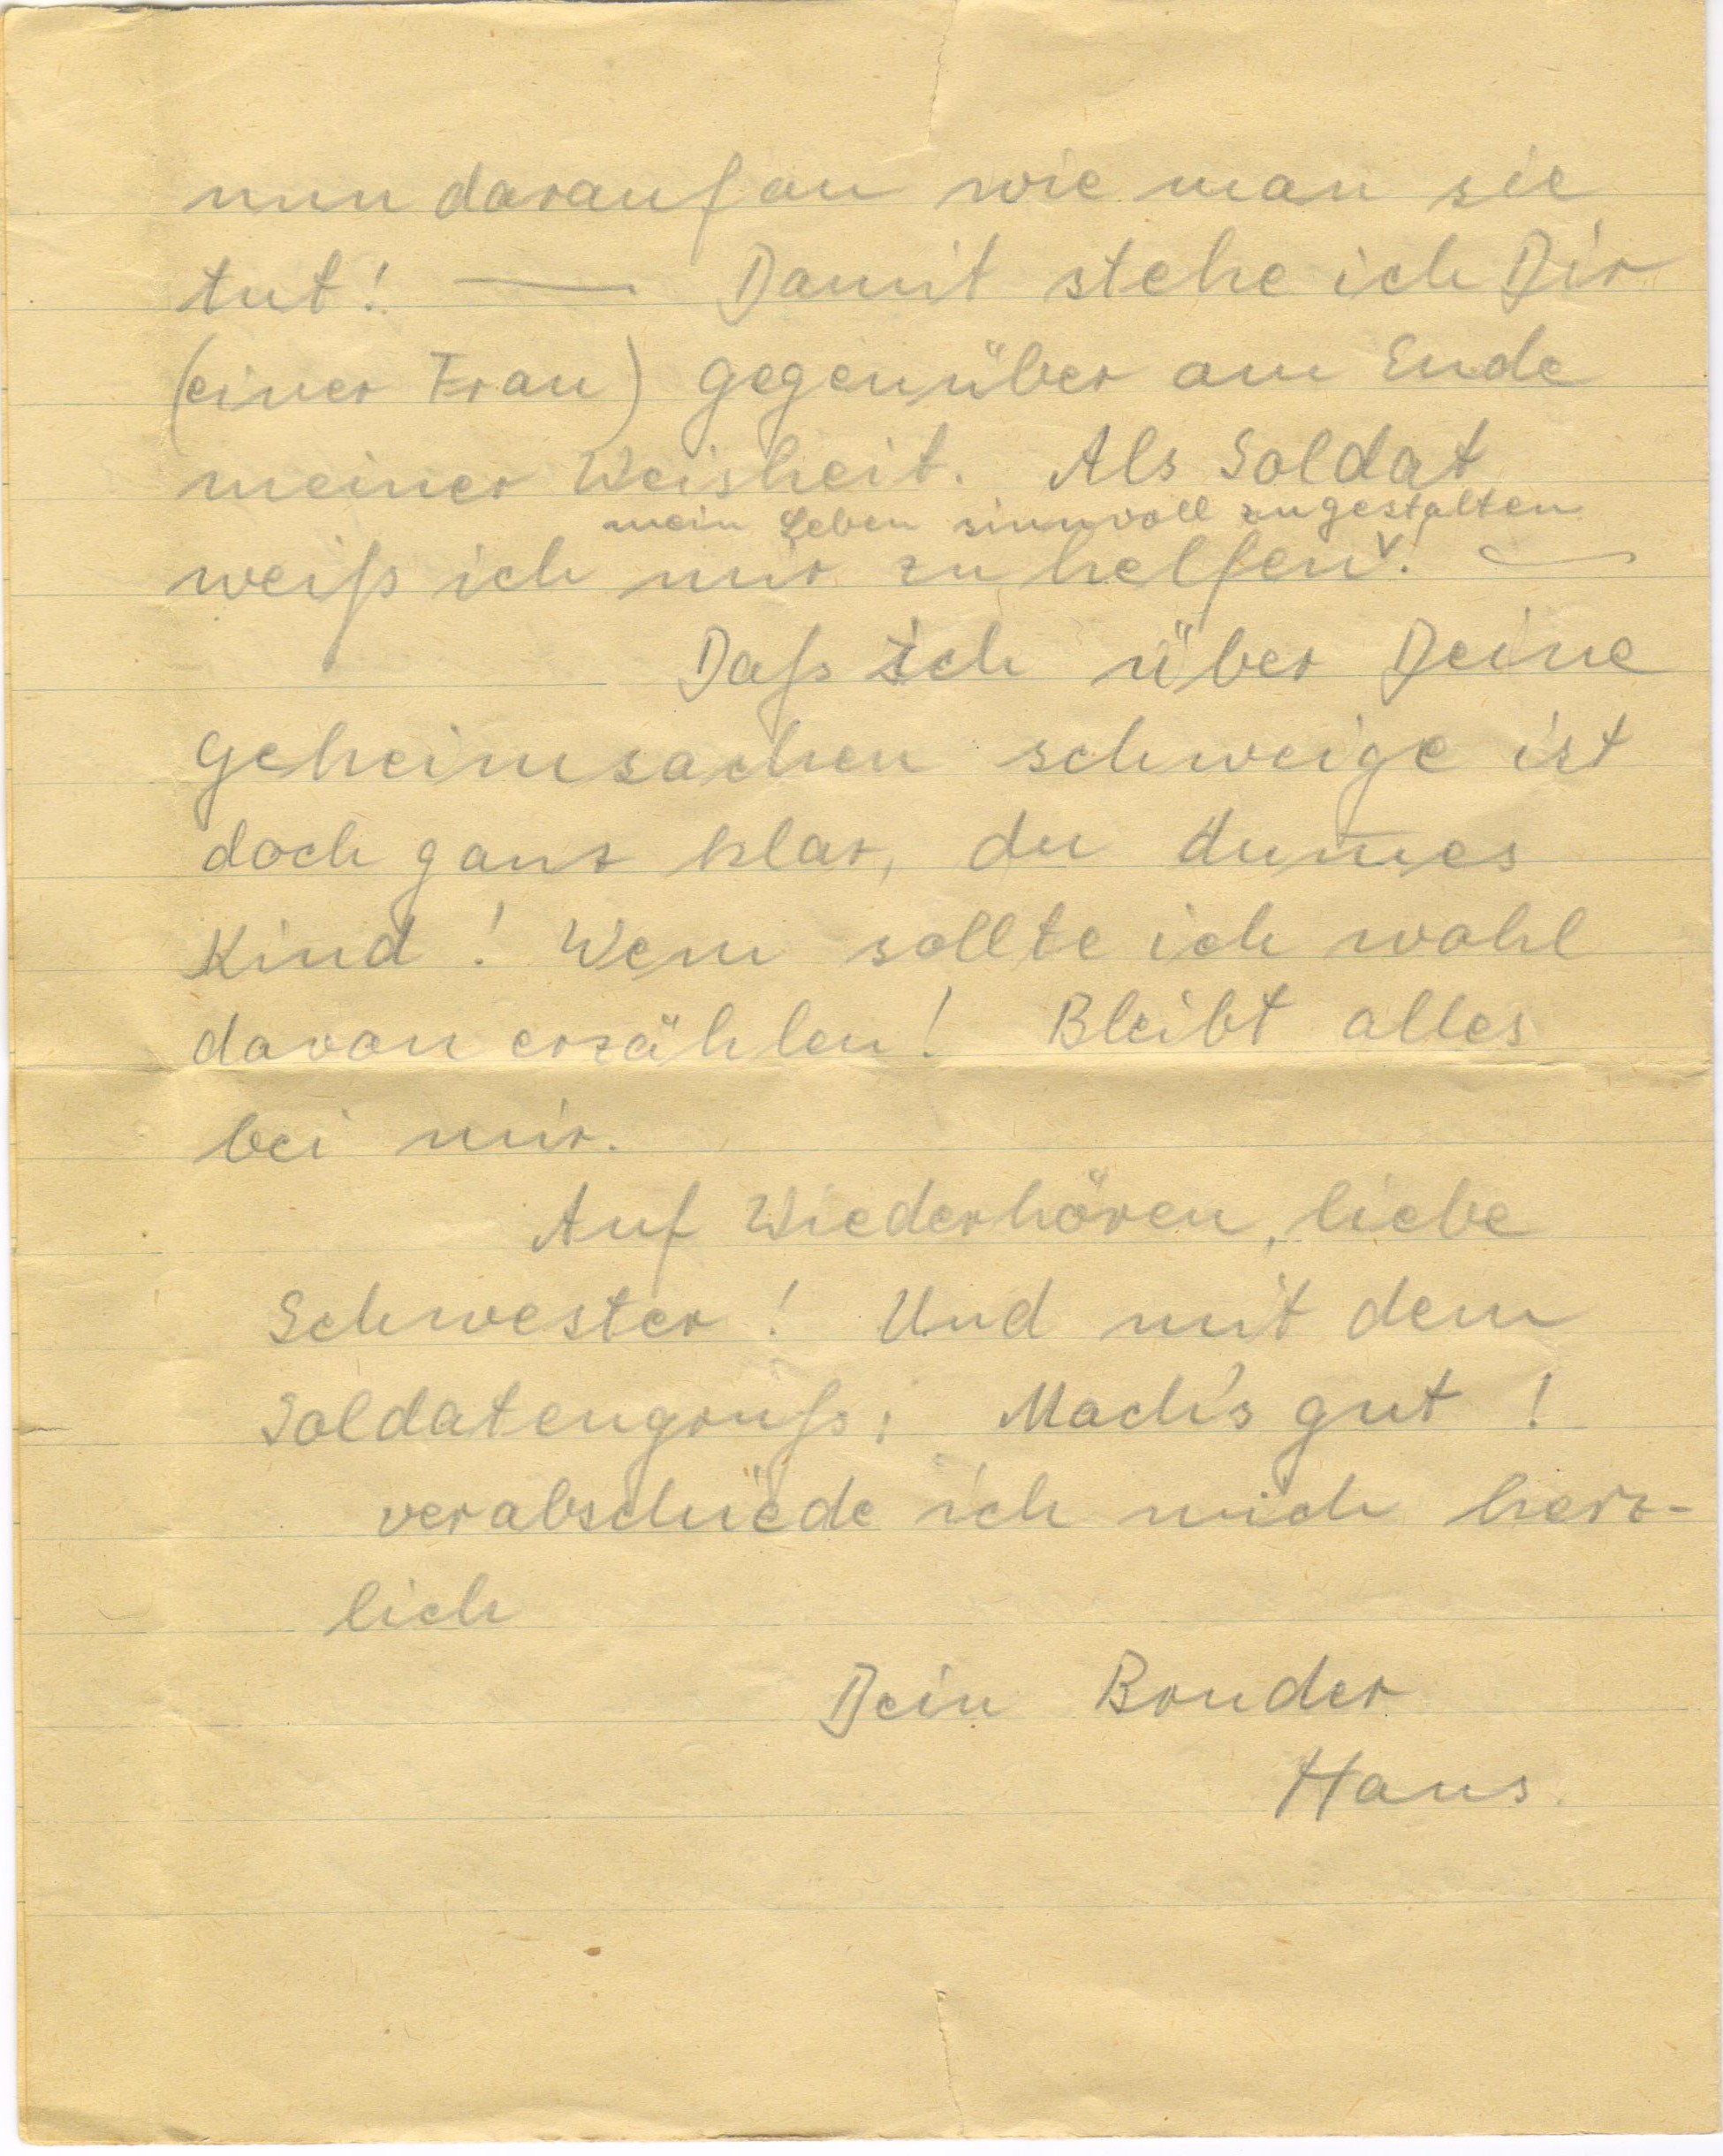 nun darauf an wie man sie
tut! — Damit stehe ich Dir
(einer Frau) gegenüber am Ende
meiner Weisheit. Als Soldat
mein Leben sinnvoll zugestalten
weiß ich mir zu helfen! —
Daß ich über Deine
Geheimsachen schweige ist
doch ganz klar, du dum̅es
Kind! Wem sollte ich wohl
davon erzählen! Bleibt alles
bei mir.
Auf Wiederhören, liebe
Schwester! Und mit dem
Soldatengruß: Mach's gut!
verabschiede ich mich herz-
lich
Dein Bruder
Hans.